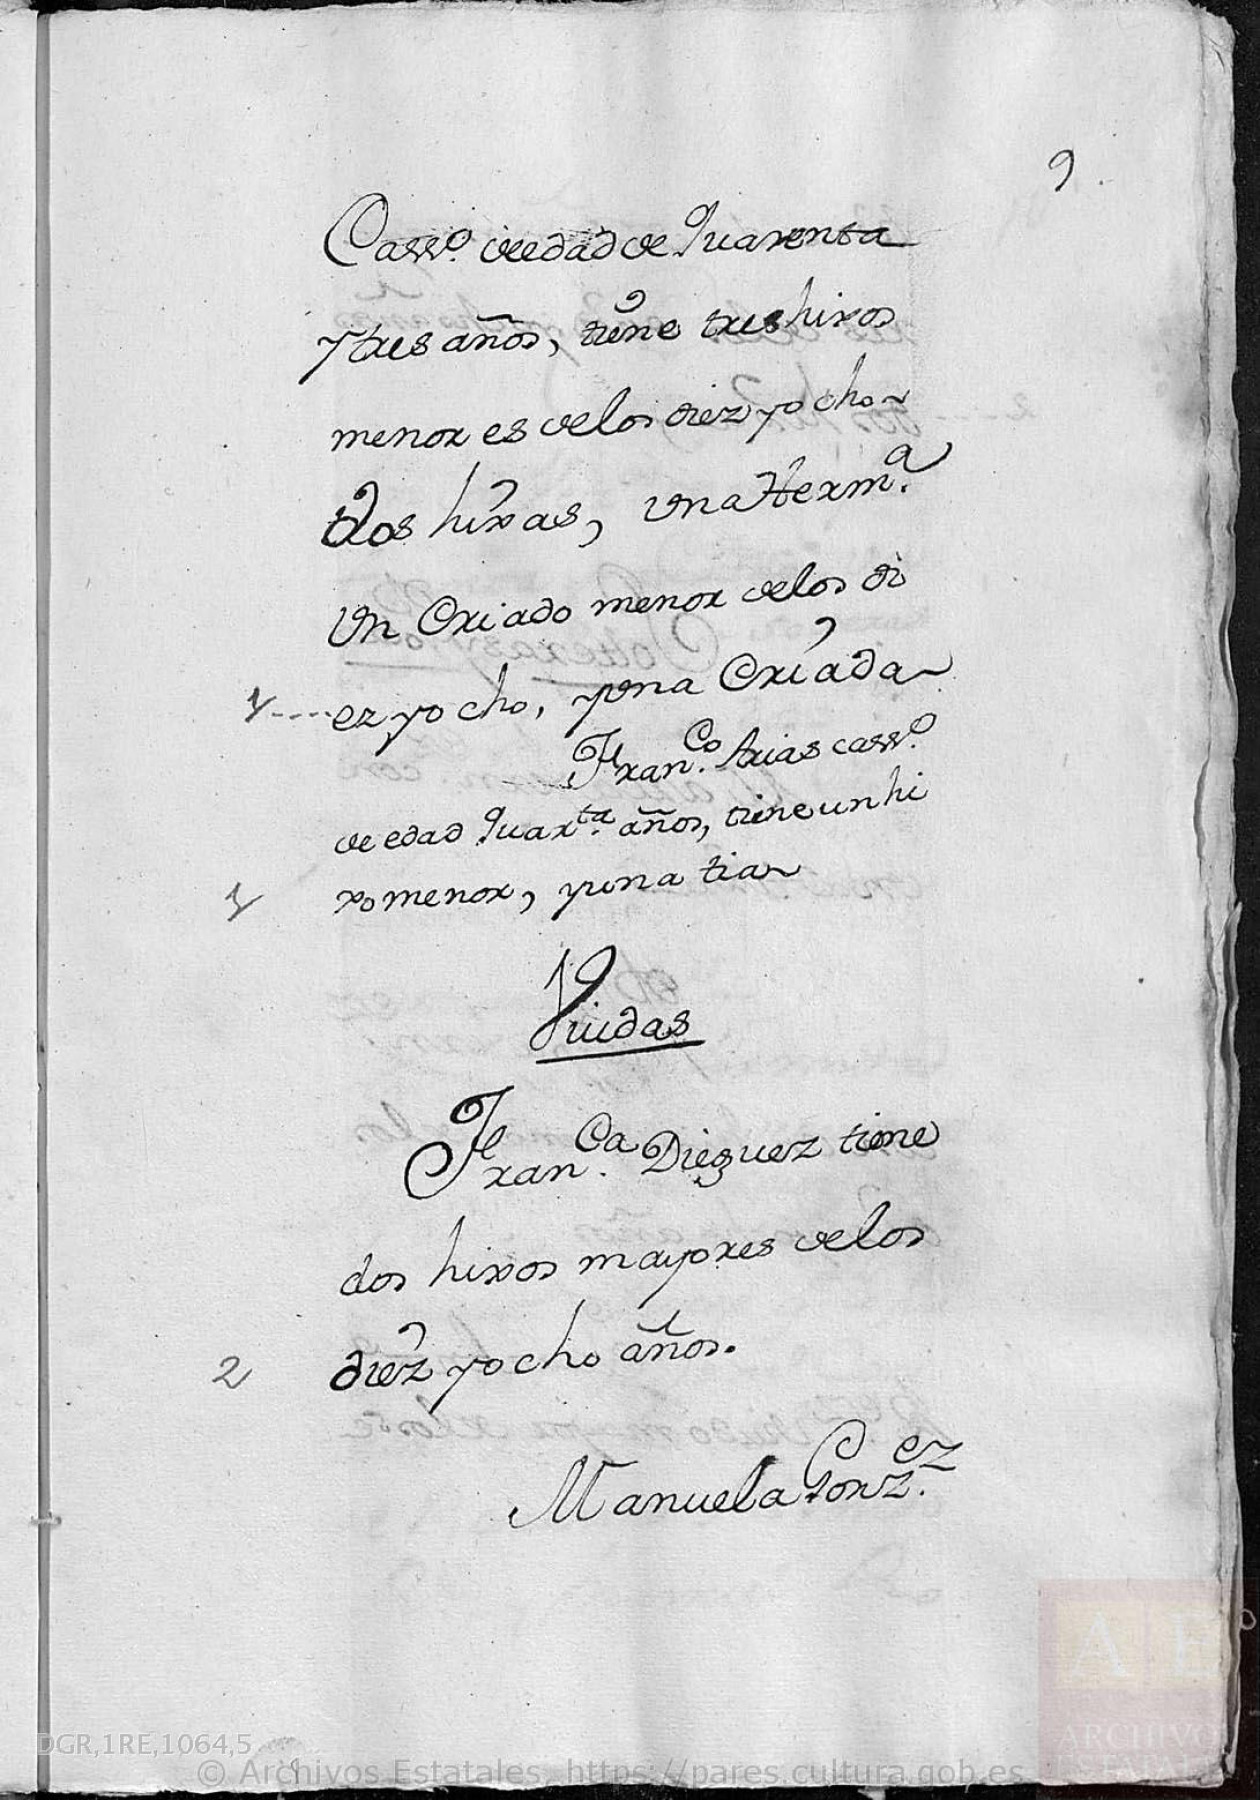 9.
Cass.º de edad de Quarenta
y tres años, tiene tres hixos
menores de los diez y ocho
Dos hixas, una Herm.ª
Un Criado menor de los di
1---- ez y ocho, y una Criada
Fran.co Arias cass.º
de edad Quar.ta años, tiene un hi
1 xo menor, y una tia
Viudas
Fran.ca Dieguez tiene
dos hixos mayores de los
2 diez y ocho años.
Manuela Gonz.ez
DGR,1RE,1064,5
© Archivos Estatales https://pares.cultura.gob.es
AE
ARCHIVOS
ESTATALES